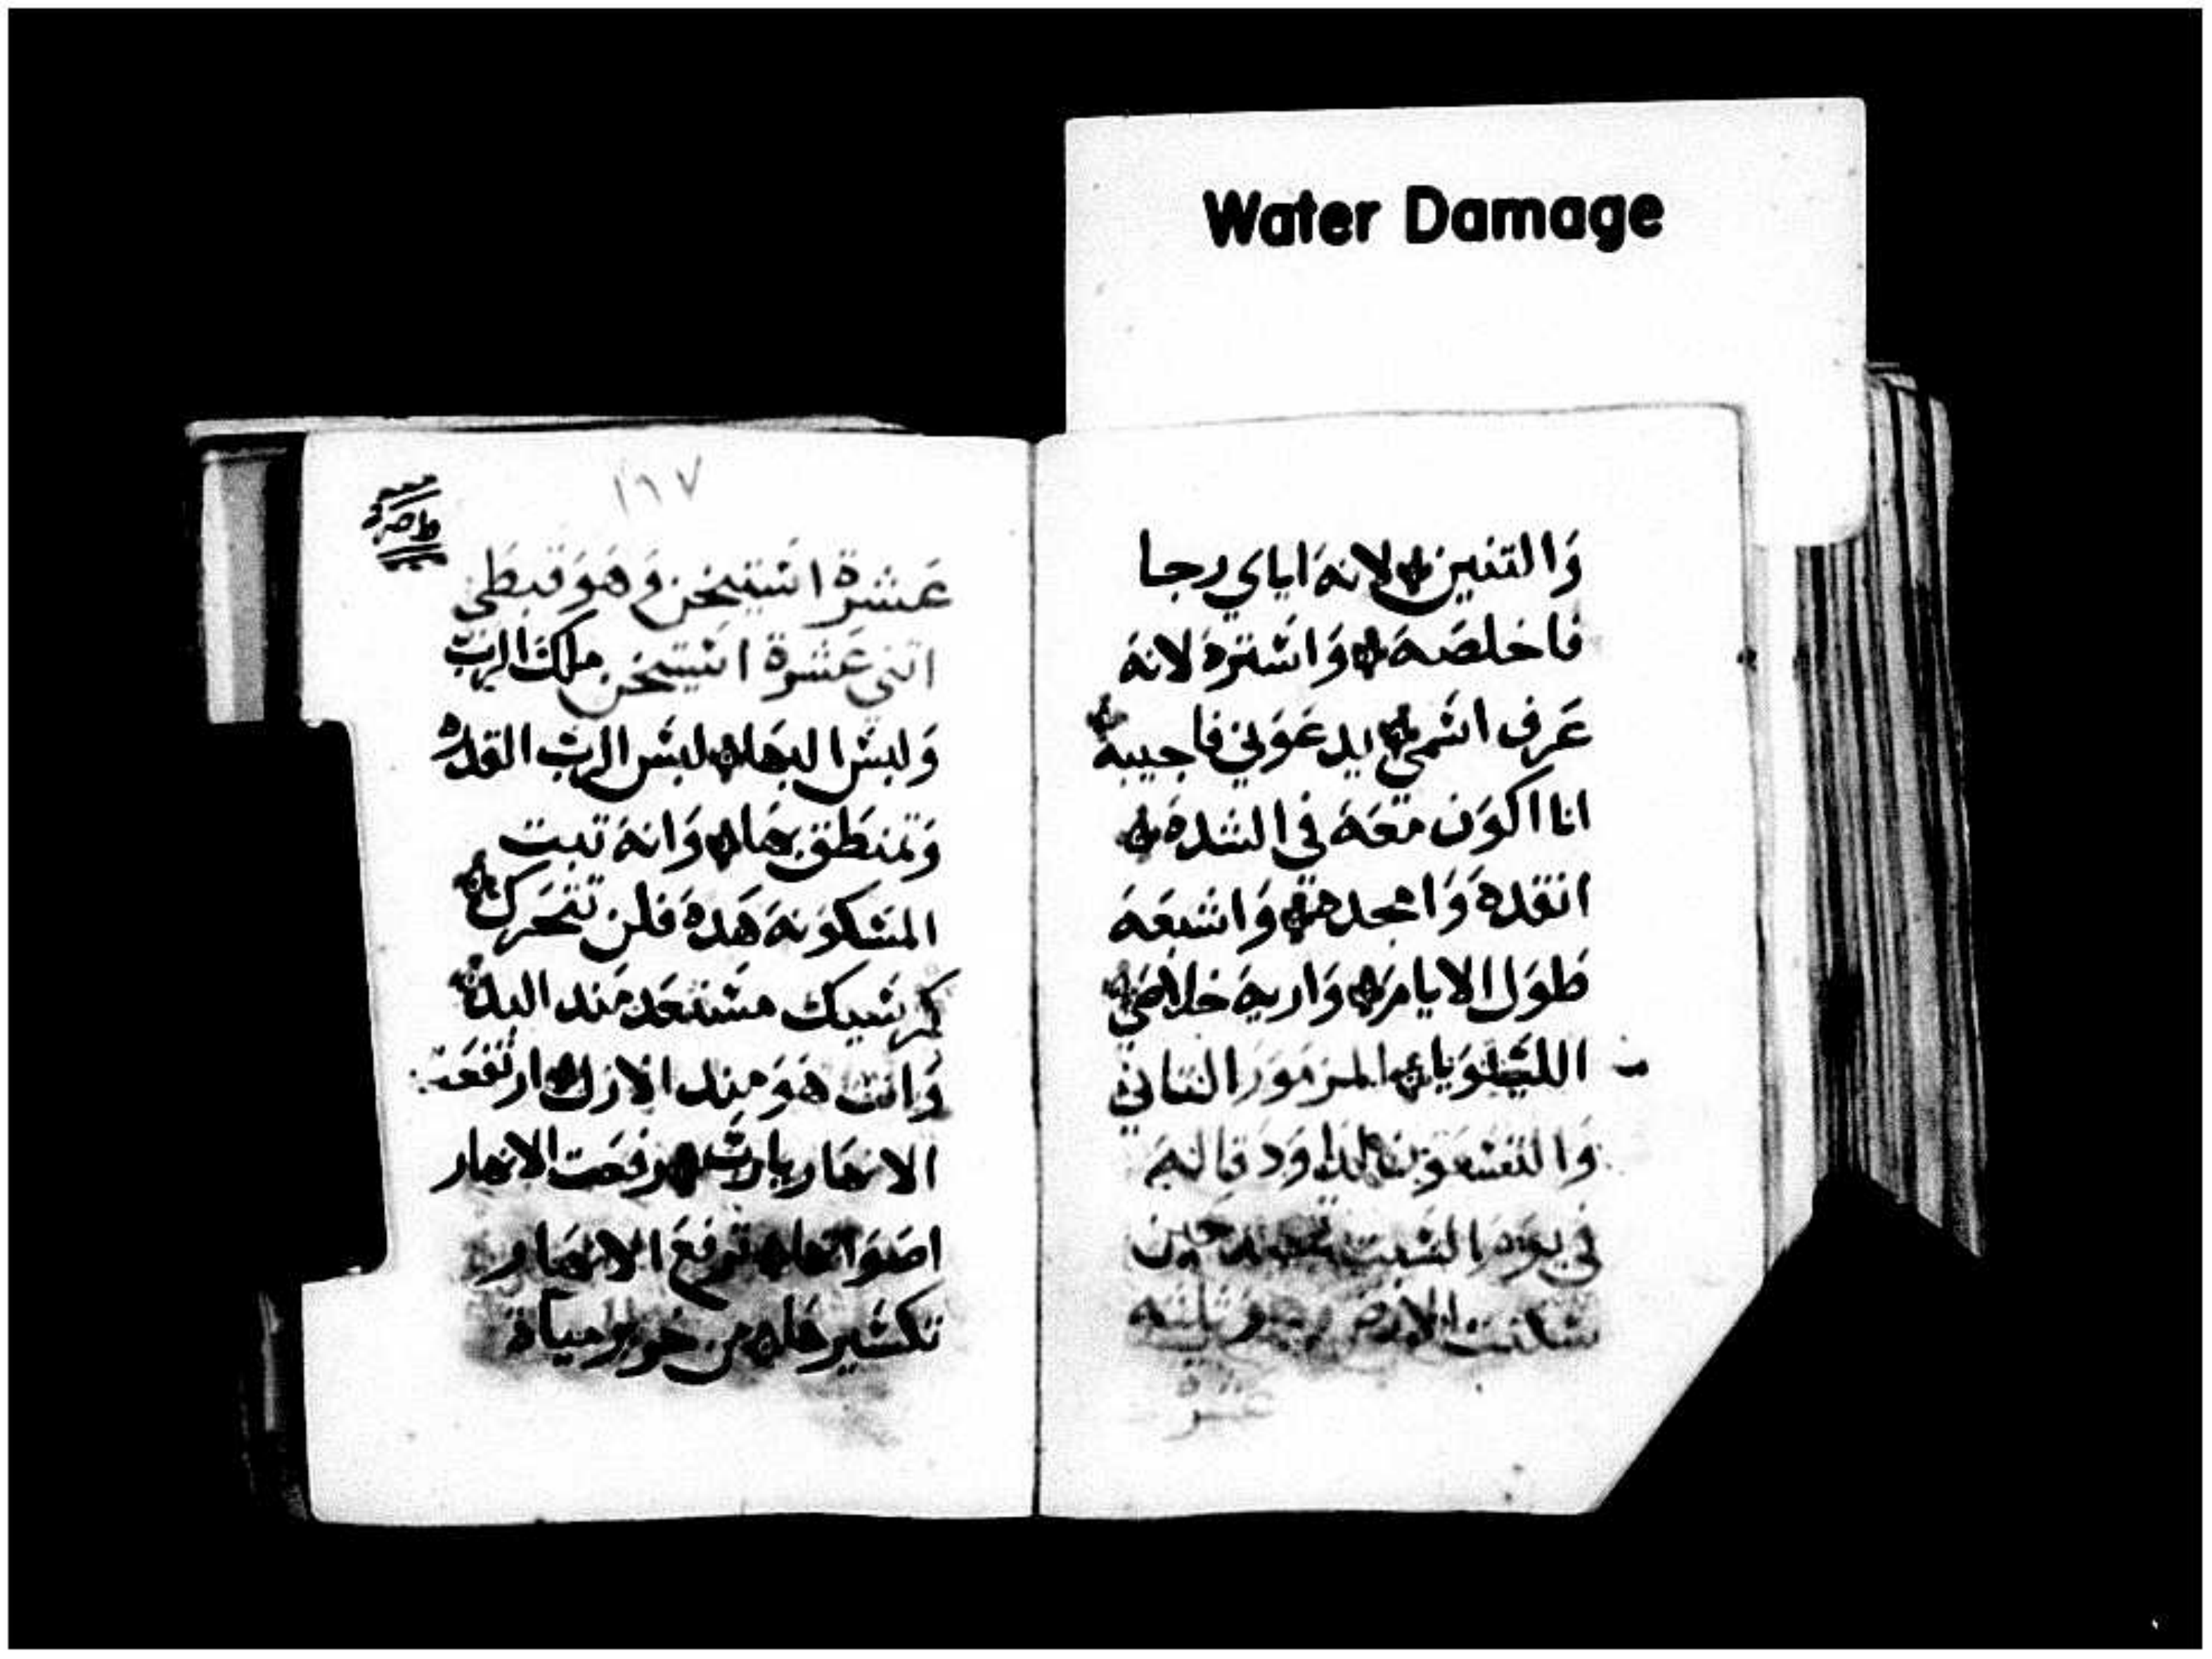 Water Damage
وَالتنين لانه اياي رجا
فاخلصه وَاشتره لانه
عَرف اسمي يدعَوني فاجيبه
انا اكوَن مَعَه في الشده
انقده وَامجده وَاشبعَه
طوَل الايام وَاريه خلاصَي
الليلوَيا المزموَر الثاني
وَالتسعَوَن لداوَد قاله
في يوَم السبت حين
سكنت الارض
عشر
١٦٧
عَشرة استيخن وَهوَ قبطي
اتني عَشرة استيخن ملك الرب
وَلبس البها لبس الرب القدره
وَتمنطق بها وَانه تبت
المسكوَنه هَده فلن تتحَرك
كرسيك مستعَد مند البدي
وَانت هوَ مند الازل ارتفعَت
الانهار يارب رفعت الانهار
اصَوَاتها ترفعَ الانهار
تكسيرها من خرير مياة